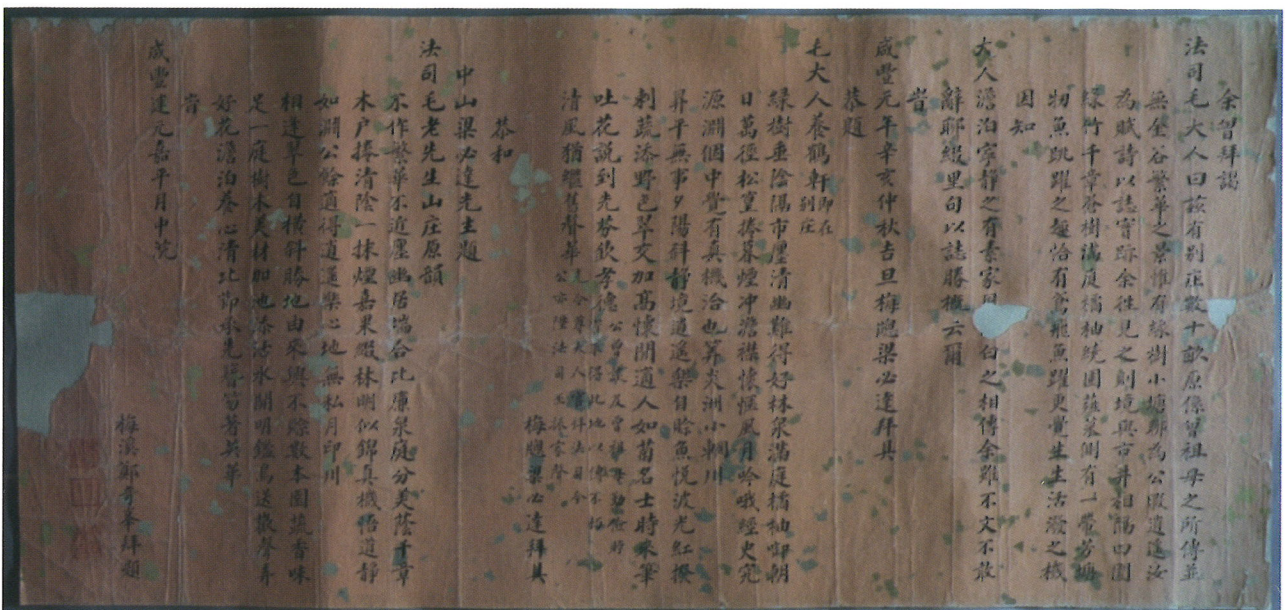 余曾拜謁
法司毛大人曰該有別庄數十畝原係曾祖母之所傳並
無金谷繁華之景惟有綠樹小塘聊為公暇逍遙汝
為賦詩以誌實跡余往見之則境與市井相隔田園
綠竹千章榕樹滿庭橘柚統囲蔬菜側有一帶芳塘
物魚跳躍之趣恰有鳶飛魚躍更覺生生活潑之機
因知
大人澹泊寧靜之有素家 白之相傳余雖不文不敢
辭聊綴里句以誌勝概云爾
旹
咸豐元年辛亥仲秋吉旦梅隐梁必達拜具
恭題
毛大人養鶴軒即在別庄
綠樹垂陰隔市廛清幽難得好林泉滿庭橘柚 朝
日萬徑松篁捧暮煙冲澹襟懷惬風月吟哦經史究
源淵個中覺有真機洽也算炎洲小輞川
昇平無事夕陽斜靜境逍遙樂自賒魚悅波光紅撥
刺蔬添野色翠交加高懷閒適人如菊名士時來筆
吐花説到先 欽孝德
清風猶繼舊聲華
梅隐梁必達拜具
恭和
中山梁必達先生題
法司毛老先生山庄原韻
不作繁華不近廛幽居端合比廉泉庭分美蔭千章
木户接清陰一抹煙嘉果殿林明似錦真機悟道靜
如淵公餘適得逍遙樂心地無私月印川
相逢翠色自橫斜勝地由來興不賒數本園蔬香味
足一庭樹木美材加池添活水開明鑑鳥送 聲弄
好花澹泊養心清比節承先 笏著英華
旹
咸豐建元嘉平月中浣
梅溪鄭奇峯拜題